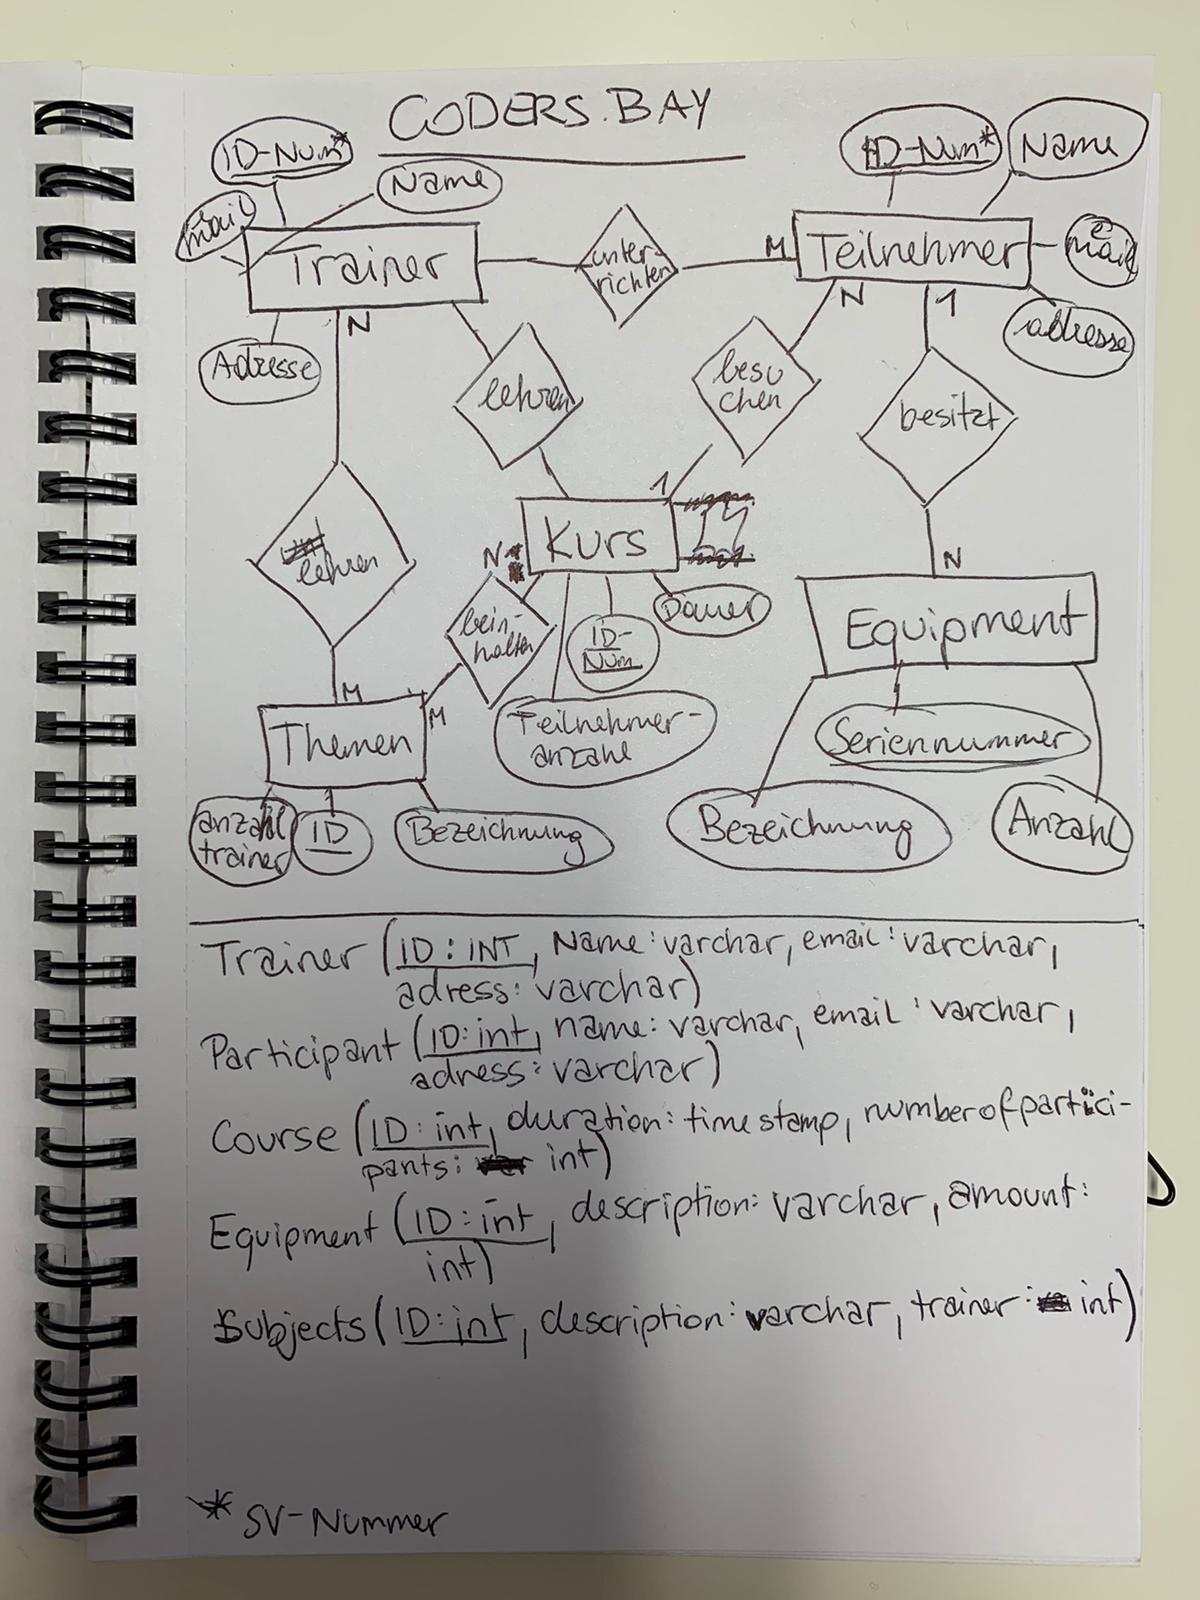 CODERS.BAY
ID-Num*
Name
mail
Trainer
Adresse
N
unter-
richten
M
ID-Num*
Name
Teilnehmer
e
mail
adresse
N
1
lehren
besu
chen
besitzt
1
Kurs
N
lehren
bein-
halten
ID-
Num
Dauer
Teilnehmer-
anzahl
N
Equipment
Seriennummer
Bezeichnung
Anzahl
M
M
Themen
anzahl
trainer
ID
Bezeichnung
Trainer (ID: INT, Name: varchar, email: varchar,
adress: varchar)
Participant (ID: int, name: varchar, email: varchar,
adress: varchar)
Course (ID: int, duration: timestamp, numberofpartici-
pants: int)
Equipment (ID: int, description: varchar, amount:
int)
Subjects (ID: int, description: varchar, trainer: int)
* SV-Nummer